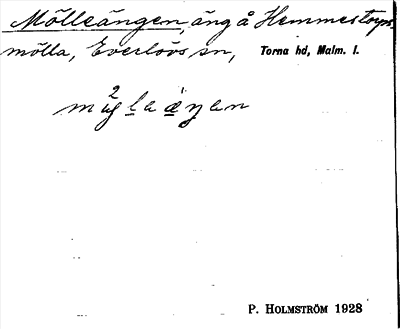 Mölleängen, äng å Hemmestorps
mölla, Everlövs sn, Torna hd, Malm. l.
P. HOLMSTRÖM 1928